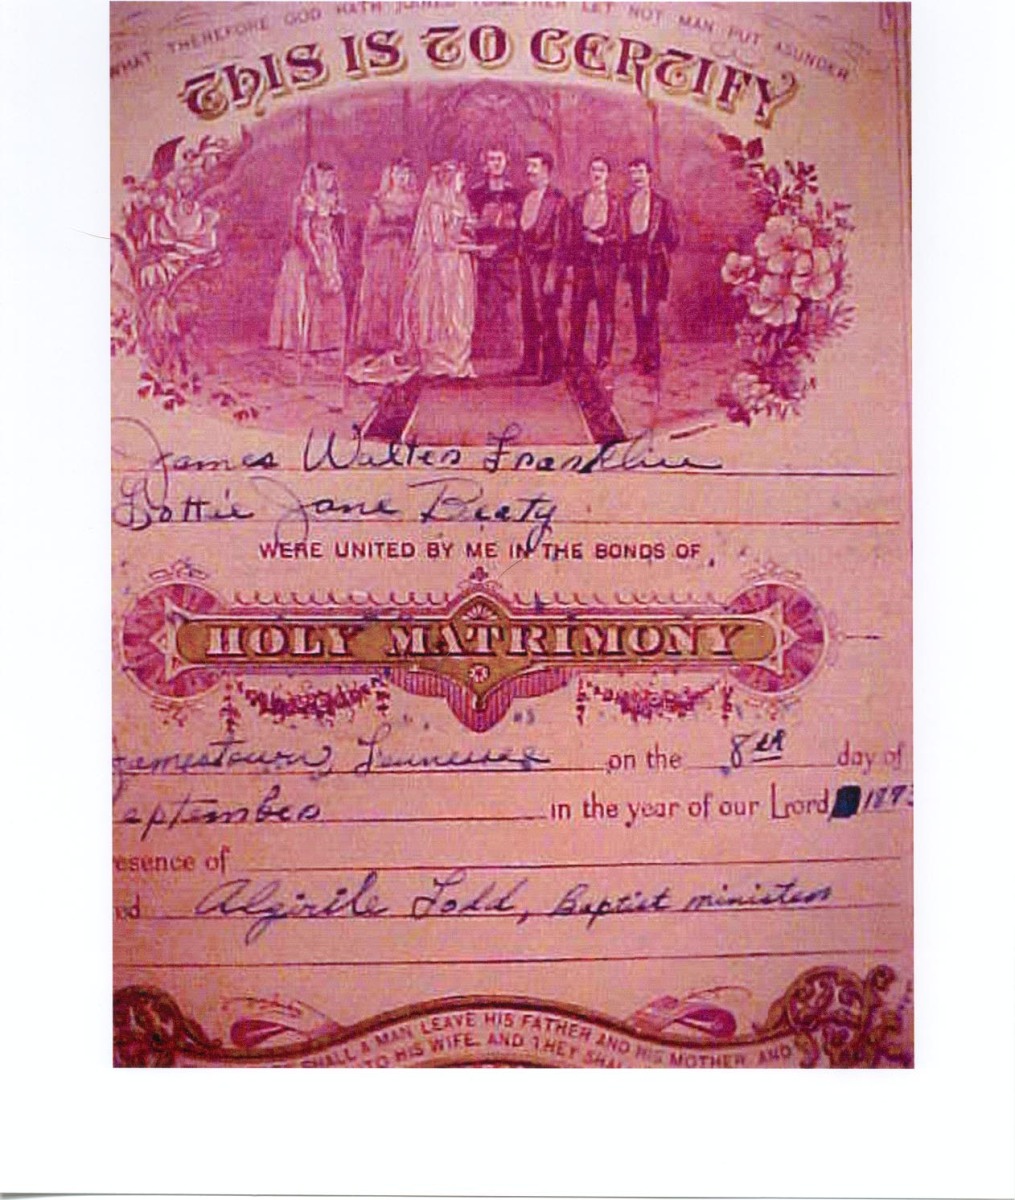 WHAT THEREFORE GOD HATH JOINED TOGETHER LET NOT MAN PUT ASUNDER
THIS IS TO CERTIFY
James Walter Franklin
Dottie Jane Beaty
WERE UNITED BY ME IN THE BONDS OF
HOLY MATRIMONY
Jamestown, Tennessee on the 8th day of
eptember in the year of our Lord 1893
resence of
ed Algirile Todd, Baptist minister
SHALL A MAN LEAVE HIS FATHER AND HIS MOTHER AND
TO HIS WIFE. AND THEY SHAL